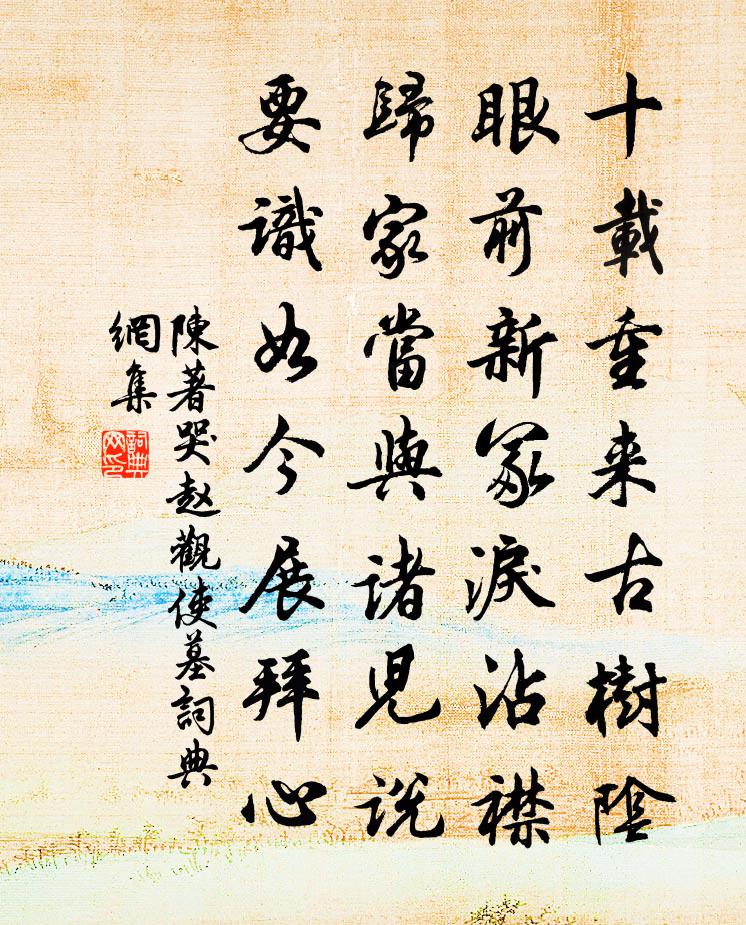 十載重来古樹陰
眼前新冢淚沾襟
歸家當與諸児説
要識如今展拜心
陳著哭赵觀使墓詞典
網集
詞典
网印